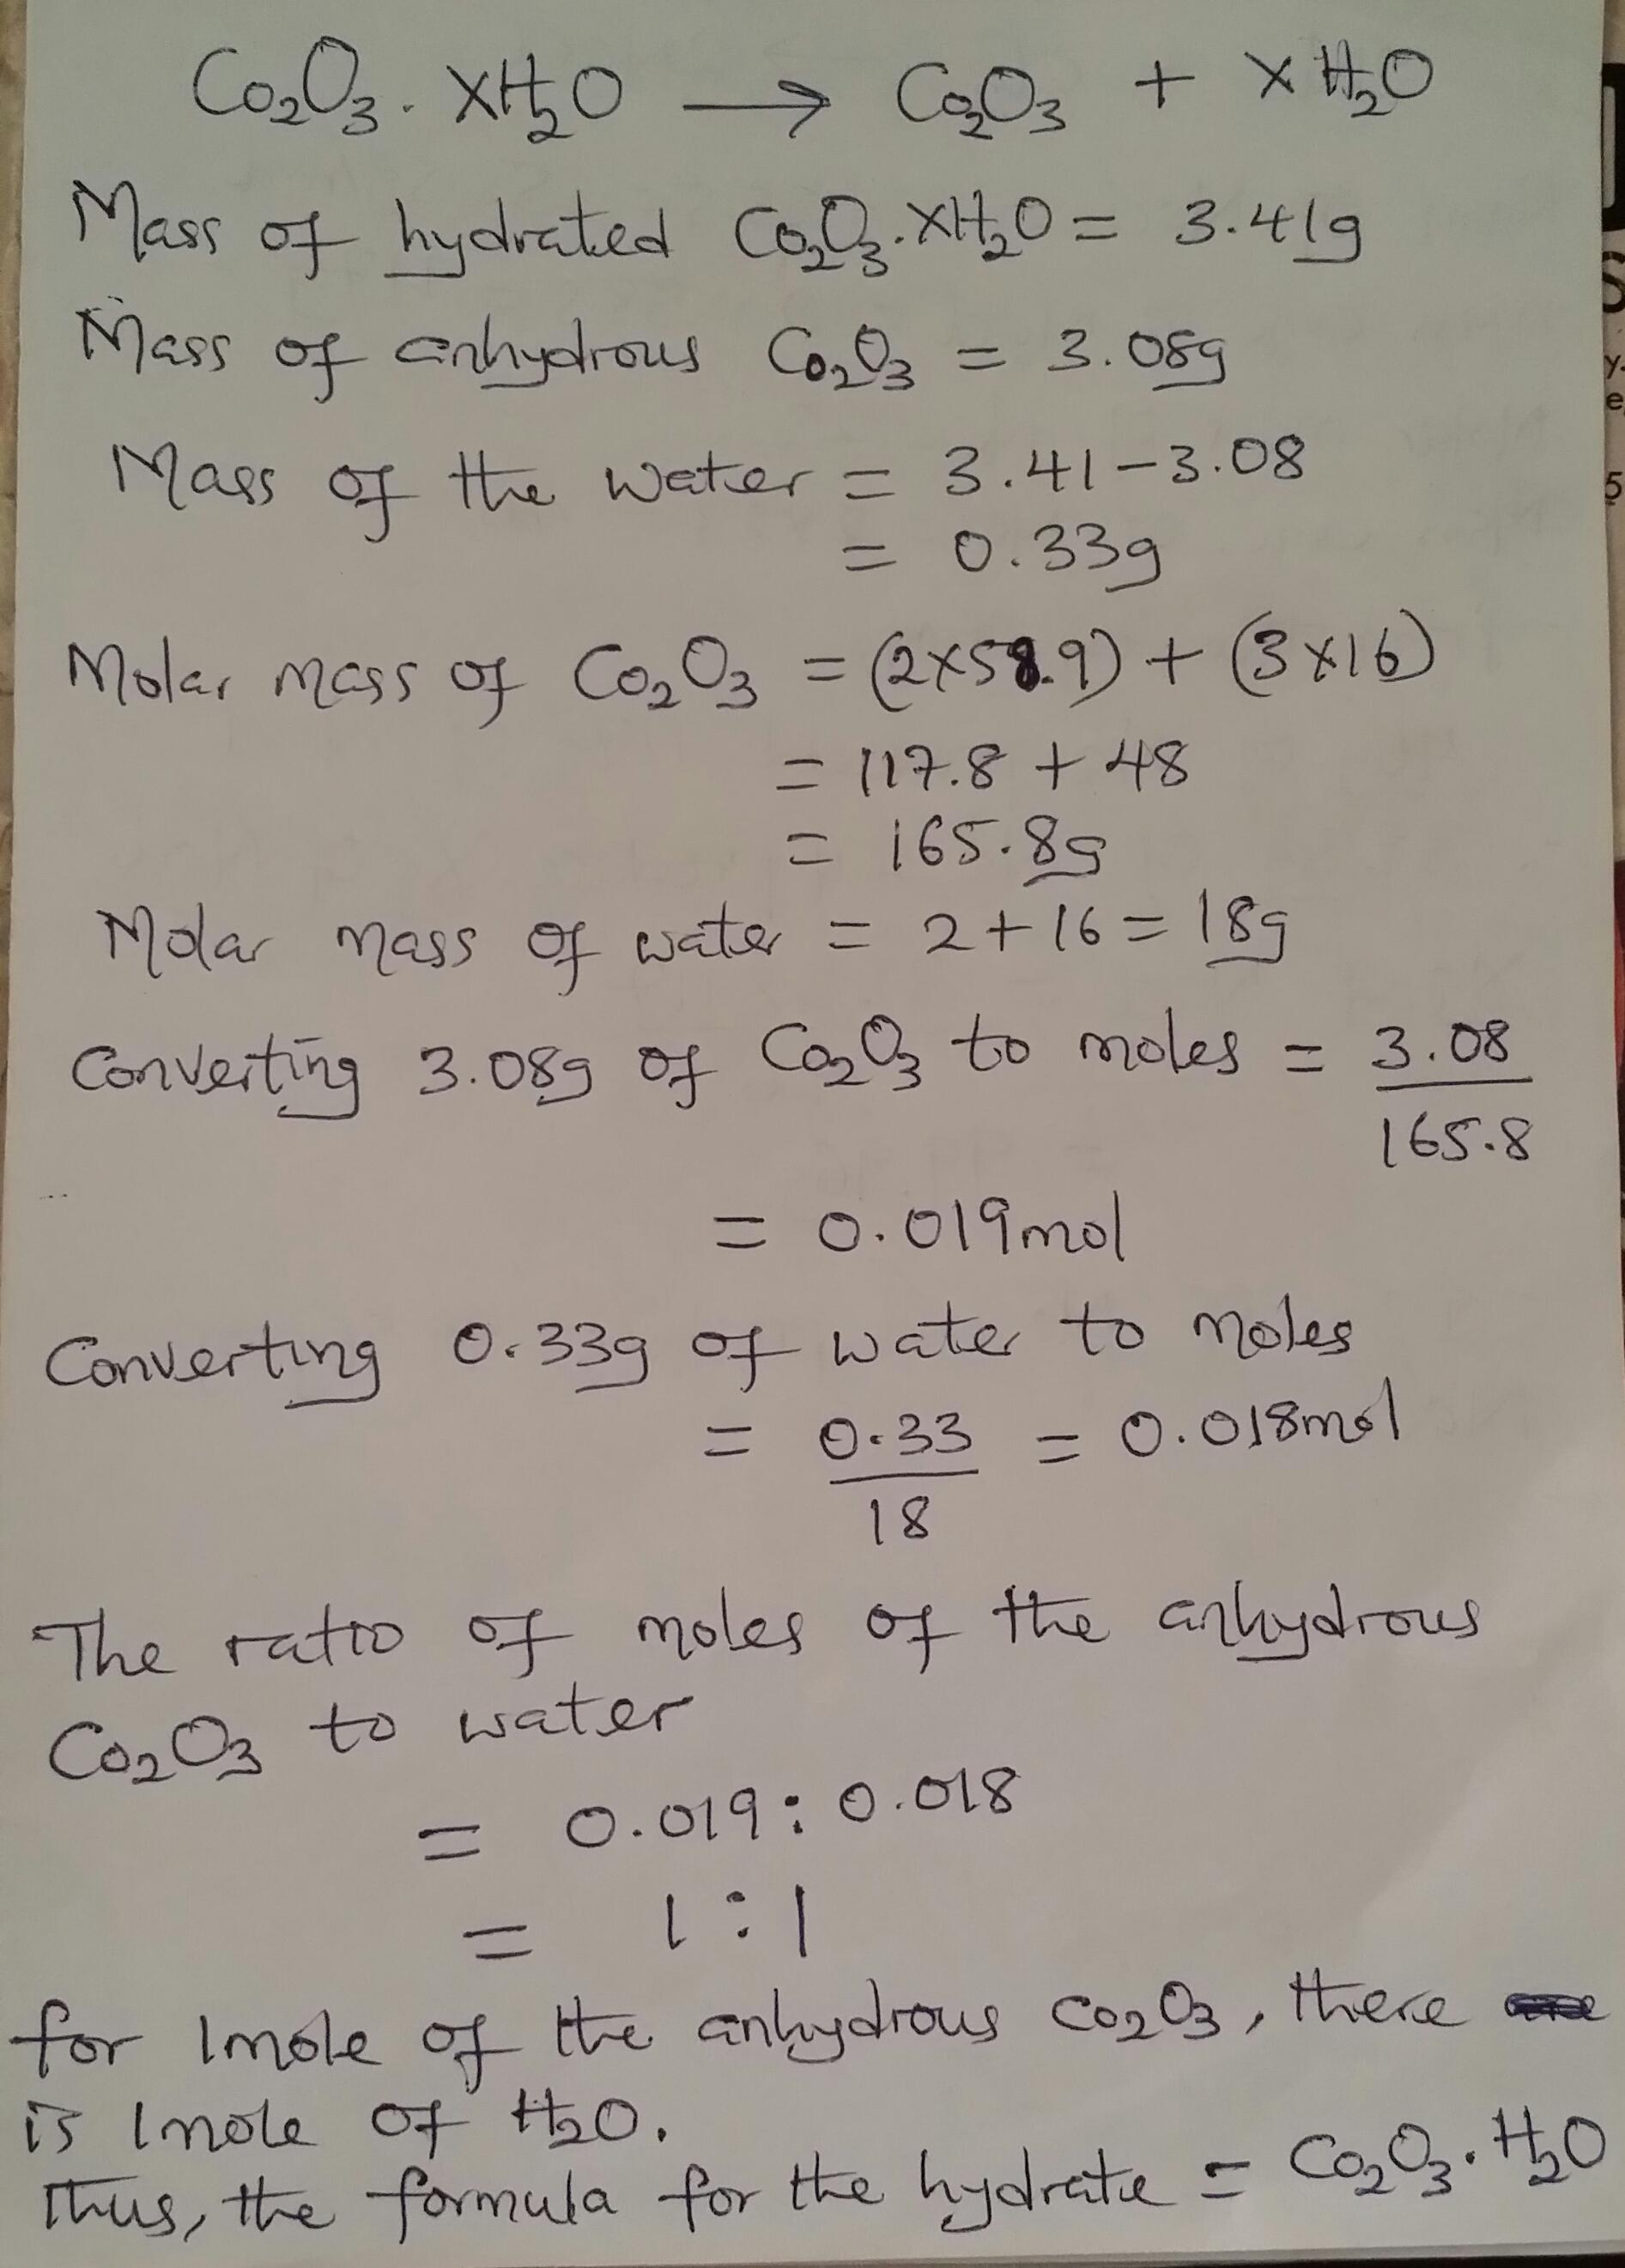 Co₂O₃ . XH₂O → Co₂O₃ + XH₂O
Mass of hydrated Co₂O₃.XH₂O = 3.41g
Mass of anhydrous Co₂O₃ = 3.08g
Mass of the water = 3.41-3.08
= 0.33g
Molar mass of Co₂O₃ = (2x58.9) + (3x16)
= 117.8 + 48
= 165.8g
Molar mass of water = 2+16 = 18g
Converting 3.08g of Co₂O₃ to moles = 3.08
165.8
= 0.019mol
Converting 0.33g of water to moles
= 0.33 = 0.018mol
18
The ratio of moles of the anhydrous
Co₂O₃ to water
= 0.019 : 0.018
= 1 : 1
for 1mole of the anhydrous Co₂O₃, there
is 1mole of H₂O.
Thus, the formula for the hydrate = Co₂O₃.H₂O